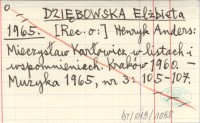 DZIĘBOWSKA Elżbieta
1965. [Rec. o:] Henryk Anders:
Mieczysław Karłowicz w listach i
wspomnieniach. Kraków 1960. –
Muzyka 1965, nr 3: 105-107.